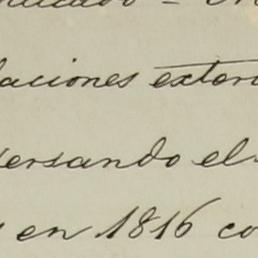 laciones exteri
versando el
s en 1816 co